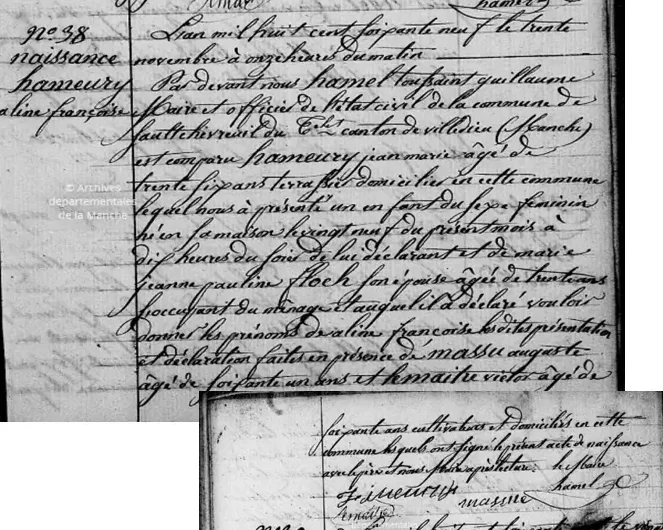 hamel
No 38
naissance
hameury
aline françoise
L'an mil huit cent soixante neuf le trente
novembre à onze heures du matin
Par devant nous hamel toussaint guillaume
Maire et officier de l'état civil de la commune de
Saultchevreuil du T. canton de villedieu (Manche)
est comparu hameury jean marie âgé de
trente six ans terrassier domicilier en cette commune
lequel nous à présenté un enfant du sexe feminin
né en sa maison le vingt neuf du présent mois à
dix heures du soir de lui déclarant et de marie
jeanne pauline floch son épouse âgée de trente ans
s'occupant du ménage et auquel il à déclaré vouloir
donner les prénoms de aline françoise les dites présentation
et déclaration faites en présence de massu auguste
âgé de soixante un ans et lemaitre victor âgé de
© Archives
départementales
de la Manche
soixante ans cultivateurs et domiciliés en cette
commune lesquels ont signé le présent acte de naissance
avec le père et nous Maire après lecture. le Maire
hamel
massue